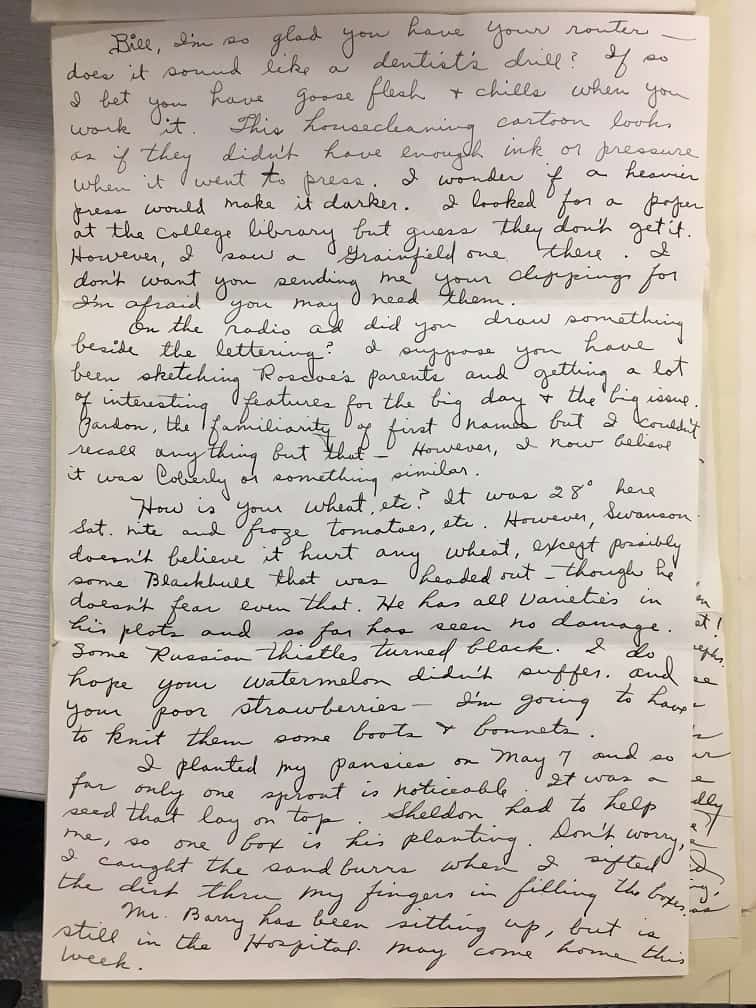 Bill, I'm so glad you have your router —
does it sound like a dentist's drill? If so
I bet you have goose flesh + chills when you
work it. This housecleaning cartoon looks
as if they didn't have enough ink or pressure
when it went to press. I wonder if a heavier
press would make it darker. I looked for a paper
at the college library but guess they don't get it.
However, I saw a Grainfield one there. I
don't want you sending me your clippings for
I'm afraid you may need them.
On the radio ad did you draw something
beside the lettering? I suppose you have
been sketching Roscoe's parents and getting a lot
of interesting features for the big day + the big issue.
Pardon, the familiarity of first names but I couldn't
recall anything but that — However, I now believe
it was Coberly or something similar.
How is your wheat, etc? It was 28° here
Sat. nite and froze tomatoes, etc. However, Swanson
doesn't believe it hurt any wheat, except possibly
some Blackhull that was headed out — though he
doesn't fear even that. He has all varieties in
his plots and so far has seen no damage.
Some Russian thistles turned black. I do
hope your watermelon didn't suffer. and
your poor strawberries — I'm going to have
to knit them some boots + bonnets.
I planted my pansies on May 7 and so
far only one sprout is noticeable. It was a
seed that lay on top. Sheldon had to help
me, so one box is his planting. Don't worry,
I caught the sandburrs when I sifted
the dirt thru my fingers in filling the boxes.
Mr. Barry has been sitting up, but is
still in the Hospital. may come home this
week.